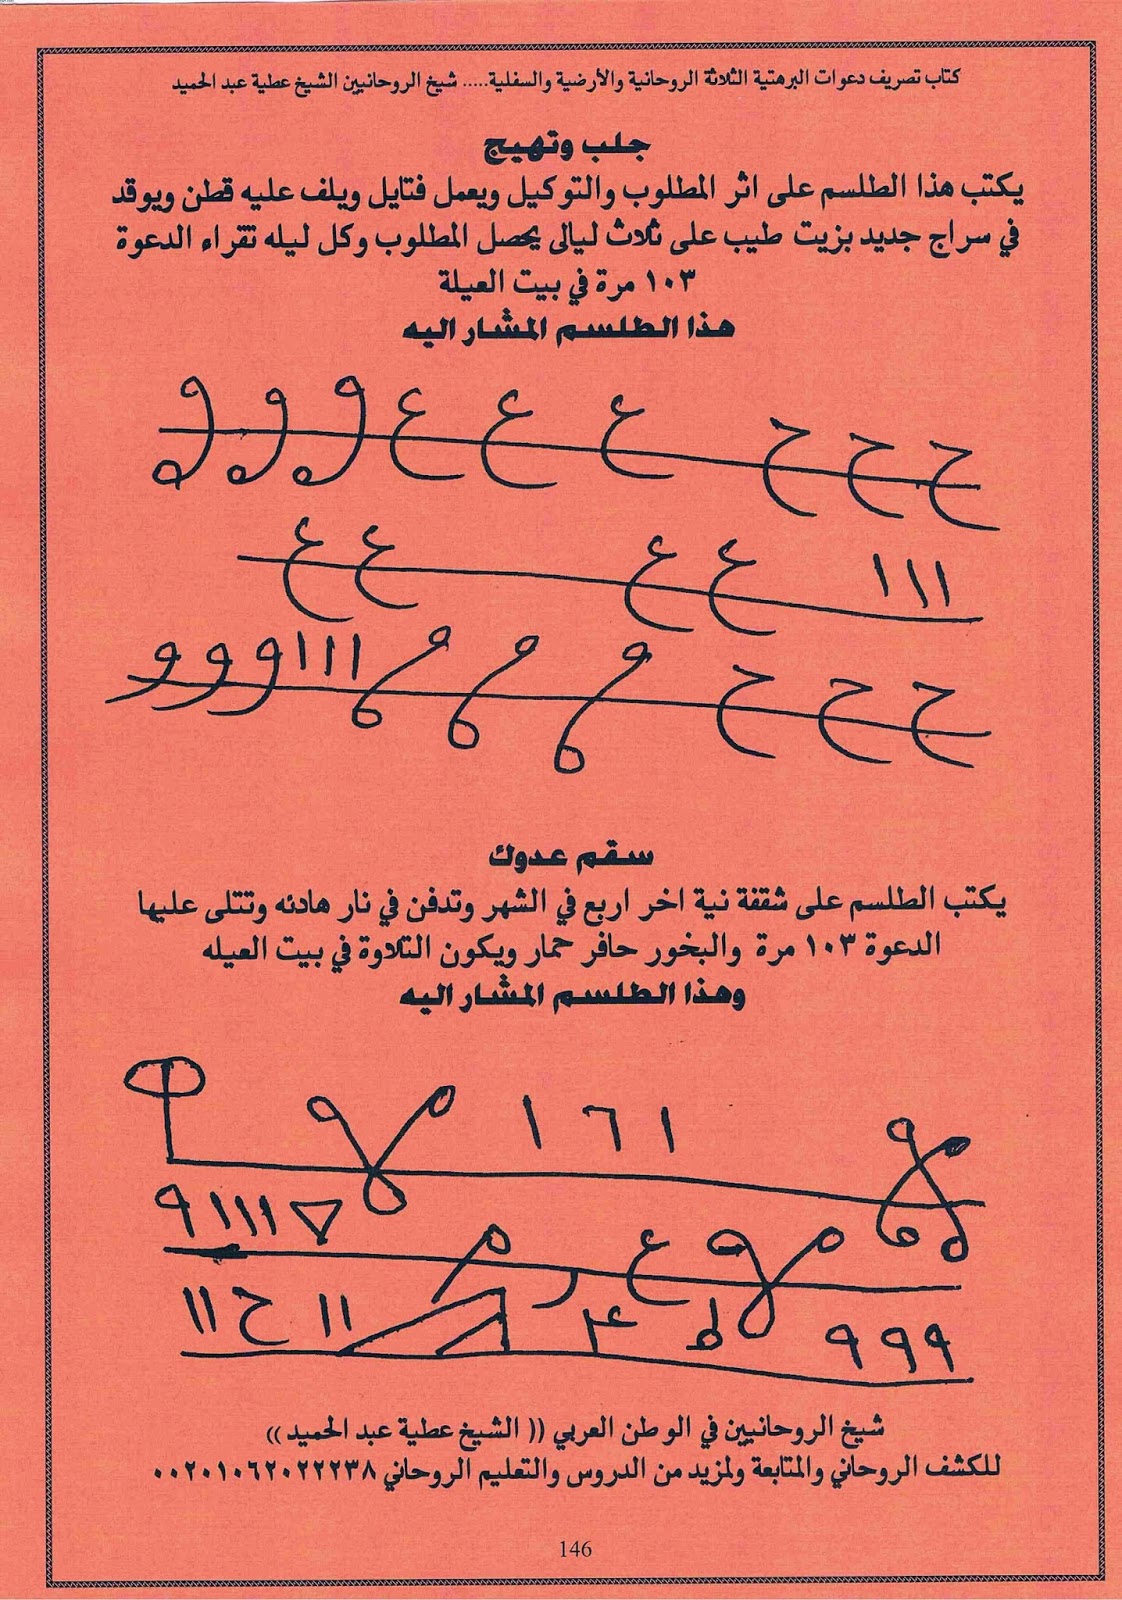 كتاب تصريف دعوات البرهتية الثلاثة الروحانية والأرضية والسفلية..... شيخ الروحانيين الشيخ عطية عبد الحميد
جلب وتهيج
يكتب هذا الطلسم على اثر المطلوب والتوكيل ويعمل فتايل ويلف عليه قطن ويوقد
في سراج جديد بزيت طيب على ثلاث ليالى يحصل المطلوب وكل ليله تقراء الدعوة
١٠٣ مرة في بيت العيلة
هذا الطلسم المشار اليه
ح ح ح ع ع ع و و و
ااا ع ع ع ع
ح ح ح م م م ااا و و و
سقم عدوك
يكتب الطلسم على شقفة نية اخر اربع في الشهر وتدفن في نار هادئه وتتلى عليها
الدعوة ١٠٣ مرة والبخور حافر حمار ويكون التلاوة في بيت العيله
وهذا الطلسم المشار اليه
١ ٦ ١
ع ١١١ ٩
٩٩٩ ط ١١ ح ١١
شيخ الروحانيين في الوطن العربي (( الشيخ عطية عبد الحميد ))
للكشف الروحاني والمتابعة ولمزيد من الدروس والتعليم الروحاني ٠٠٢٠١٠٦٢٠٢٢٢٣٨
146